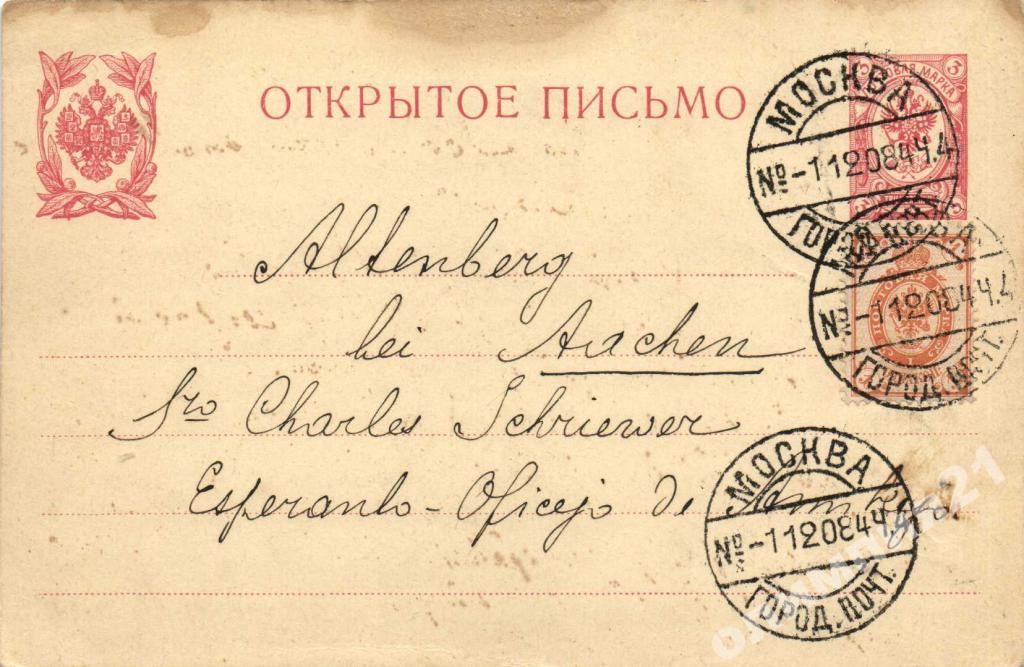 ОТКРЫТОЕ ПИСЬМО
МОСКВА
№-1 12 08 4 Ч. 4
ГОРОД. ПОЧТ.
ПОЧТОВАЯ МАРКА 3
МОСКВА.
№-1 12 08 4 Ч. 4
ГОРОД. ПОЧТ.
Altenberg
bei Aachen
Sro Charles Schriewer
Esperanto-Oficejo de
МОСКВА
№-1 12 08 4 Ч.
ГОРОД. ПОЧТ.